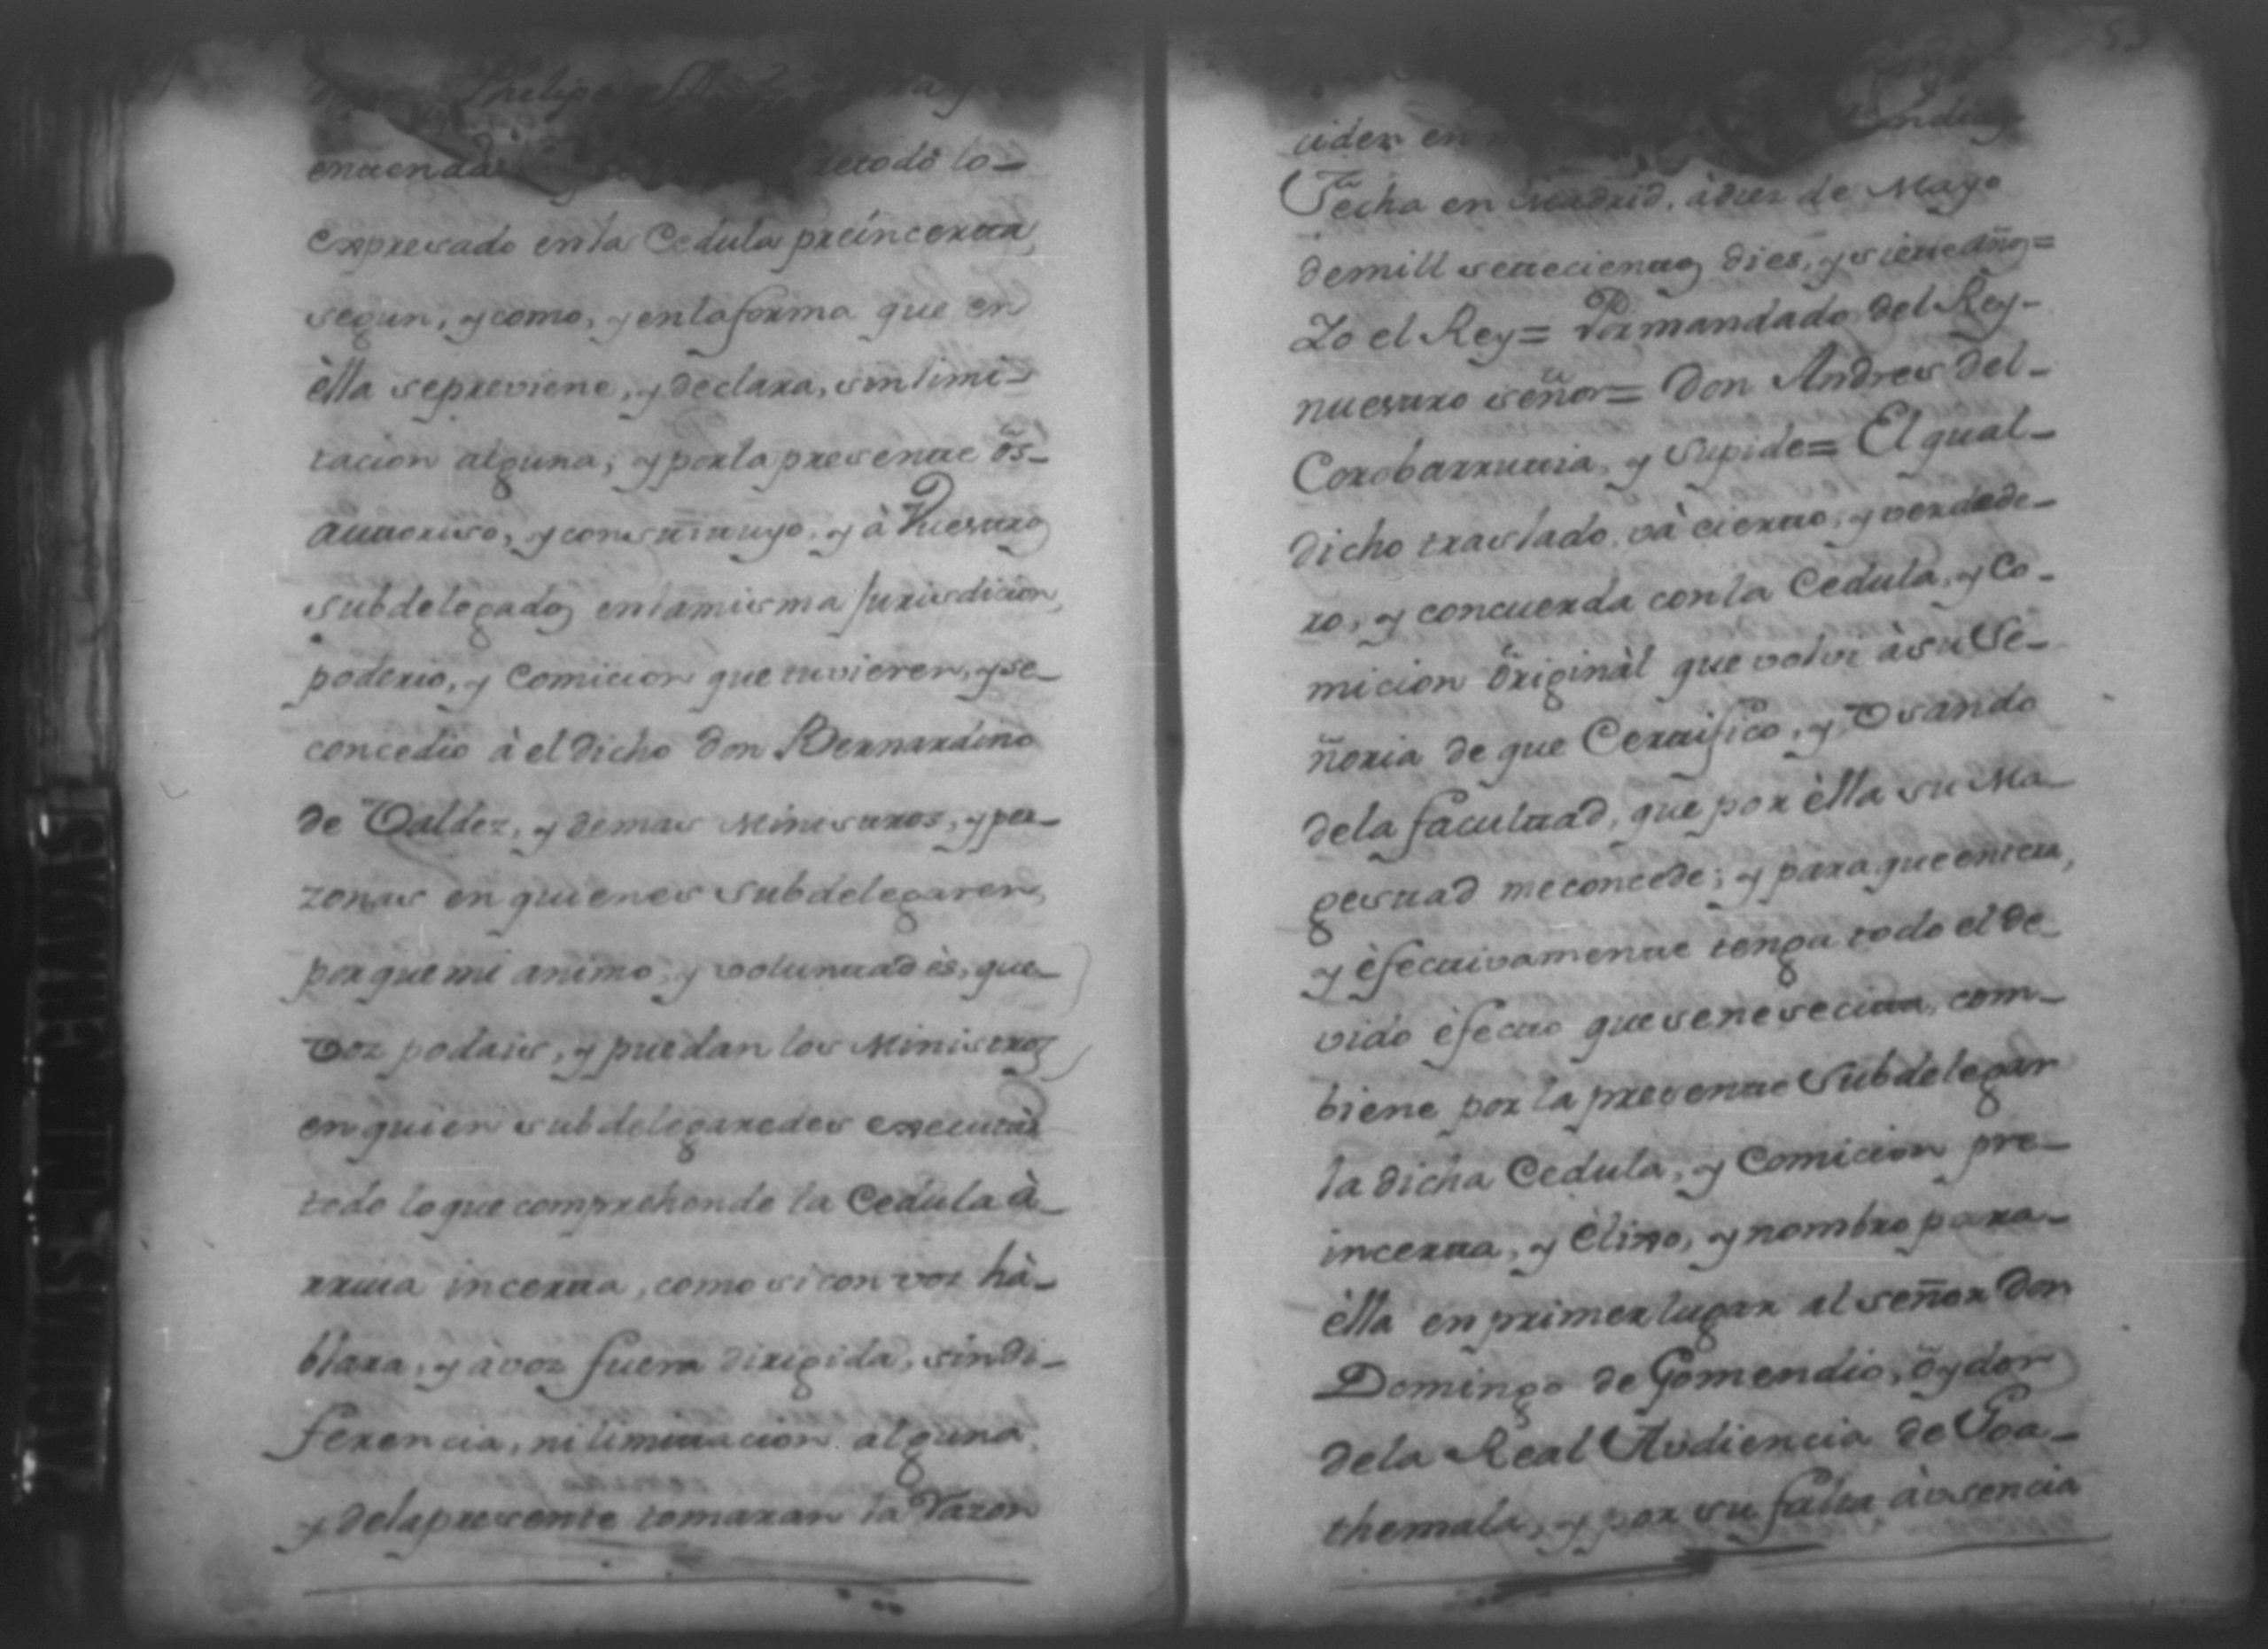 Phelipe
entienda detodo lo-
expresado enla Cedula preincerta,
segun, y como, y enlaforma que en
èlla sepreviene, y declara, sin limi-
tacion alguna; y porla presente ôs-
authoriso, y constituyo, y à Vuestros
subdelegados enlamisma Jurisdicion,
poderio, y Comicion que tuvieren, y se-
concedio à el dicho Don Bernardino
de Valdez, y demas Ministros, y per-
zonas en quienes subdelegaren,
porque mi animo, y voluntad ès, que-
Voz podais, y puedan los Ministros
en quien subdelegaredes executar
todo lo que comprehende la Cedula à-
rriva incerta, como si con voz hà-
blara, y à voz fuera dirigida, sin di-
ferencia, ni limitacion alguna,
y delapresente tomaran la Razon
53
ciden en Yndias
Fecha en Madrid, à diez de Mayo
demill settecientos dies, y siette años=
Yo el Rey= Por mandado del Rey-
nuestro señor= Don Andres del-
Corobarrutia, y Supide= El qual-
dicho traslado, và cierto, y verdade-
ro, y concuerda con la Cedula, y Co-
micion original que volvi à su Se-
ñoria de que Certifico, y Vsando
dela facultad, que por èlla su Ma-
gestad me concede; y para que entera,
y èfectivamente tenga todo el de-
vido èfecto que se nesecita, com-
biene por la presente Subdelegar
la dicha Cedula, y Comicion pre-
incerta, y èlixo, y nombro para-
èlla en primer lugar al señor Don
Domingo de Gomendio, ôydor
dela Real Audiencia de Goa-
themala, y por su falta àusencia